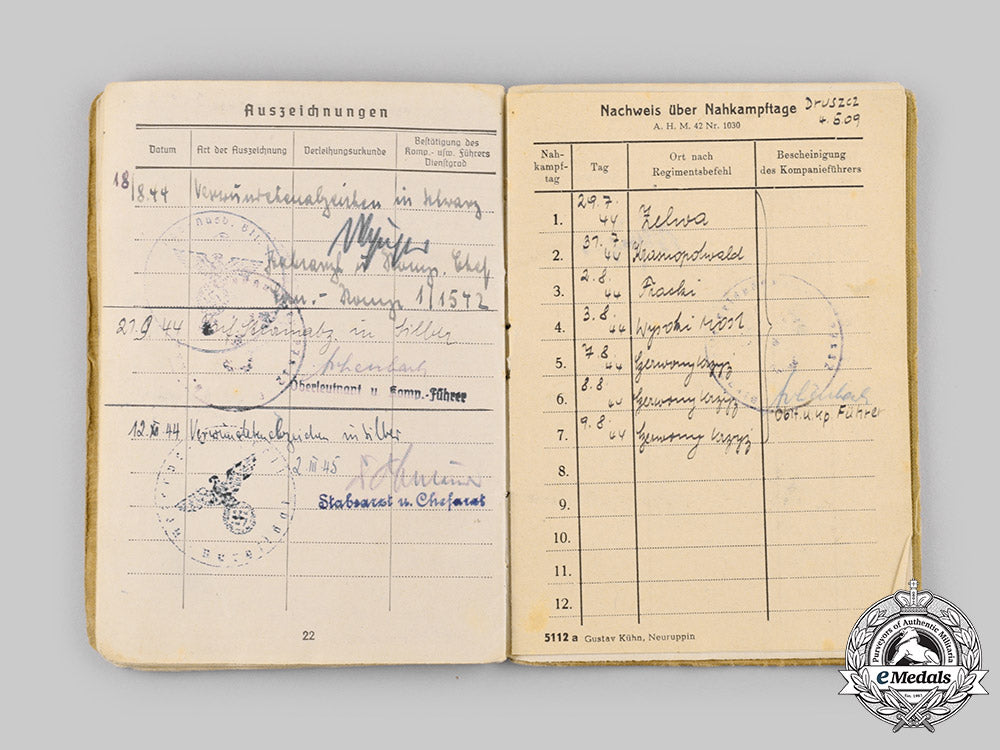 Auszeichnungen
Datum
Art der Auszeichnung
Verleihungsurkunde
Bestätigung des
Komp.- usw. Führers
Dienstgrad
18/8.44 Verwundetenabzeichen in Schwarz
Stabsarzt u. Komp. Chef
Komp. 1/1572
21.9 44 in Silber
Oberleutnant u. Komp.-Führer
12.XII 44 Verwundetenabzeichen in Silber
2 III 45
Stabsarzt u. Chefarzt
22
Nachweis über Nahkampftage
A. H. M. 42 Nr. 1030
4.5.09
Nah-
kampf-
tag
Tag
Ort nach
Regimentsbefehl
Bescheinigung
des Kompanieführers
1. 29.7. 44 Zelwa
2. 31.7 44 Krasnopolwald
3. 2.8. 44 Fracki
4. 3.8. 44 Wysoki most
5. 7.8. 44 Czerwony krzyż
6. 8.8. 44 Czerwony krzyż
7. 9.8. 44 Czerwony krzyż
Oblt. u. Kp. Führer
8.
9.
10.
11.
12.
5112 a Gustav Kühn, Neuruppin
Purveyors of Authentic Militaria
eMedals